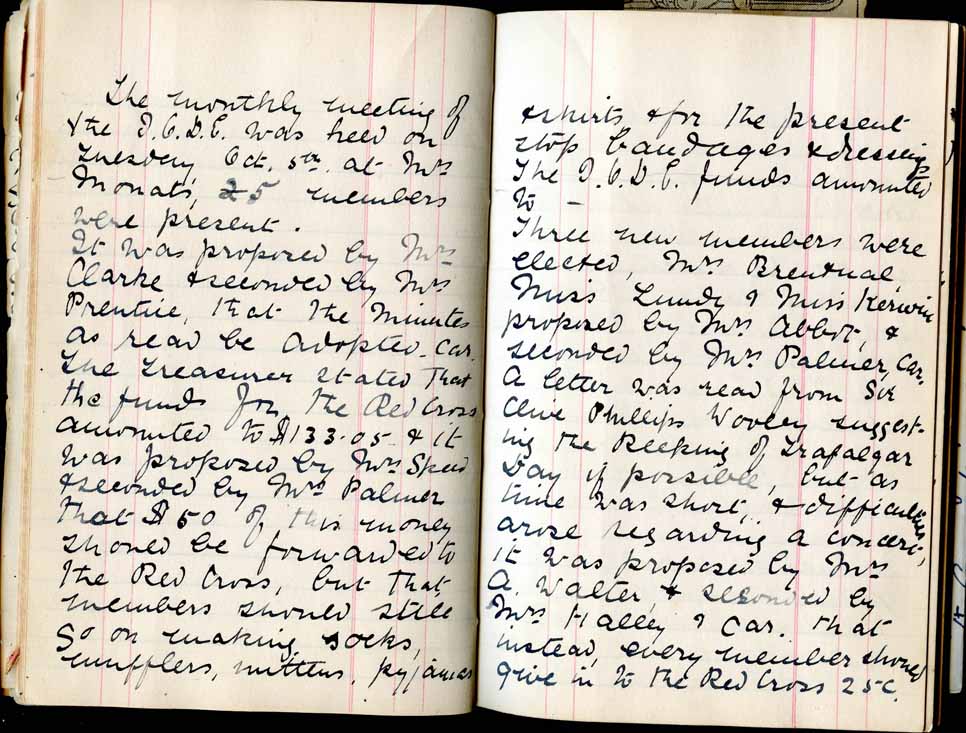 The monthly meeting of
the I.O.D.E. was held on
Tuesday, Oct. 5th. at Mrs
Monat's, 25 members
were present.
It was proposed by Mrs
Clarke & seconded by Mrs
Prentice, that the Minutes
as read be adopted. Car.
The Treasurer stated that
the funds for the Red Cross
amounted to $133.05 & it
was proposed by Mrs Speed
& seconded by Mrs Palmer
that $50 of this money
should be forwarded to
the Red Cross, but that
members should still
go on making socks,
mufflers, mittens, pyjamas
& shirts & for the present
stop bandages & dressings
The I.O.D.E. funds amounted
to –
Three new members were
elected, Mrs. Brentnal,
Miss Lundy & Miss Kerwin
proposed by Mrs Abbot, &
seconded by Mrs Palmer, Car.
A letter was read from Sir
Clive Phillips Wooley suggest-
ing the keeping of Trafalgar
Day if possible, but as
time was short, & difficulties
arose regarding a concert,
it was proposed by Mrs
A. Walter, & seconded by
Mrs Halley & Car. that
instead, every member should
give in to the Red Cross 25c.